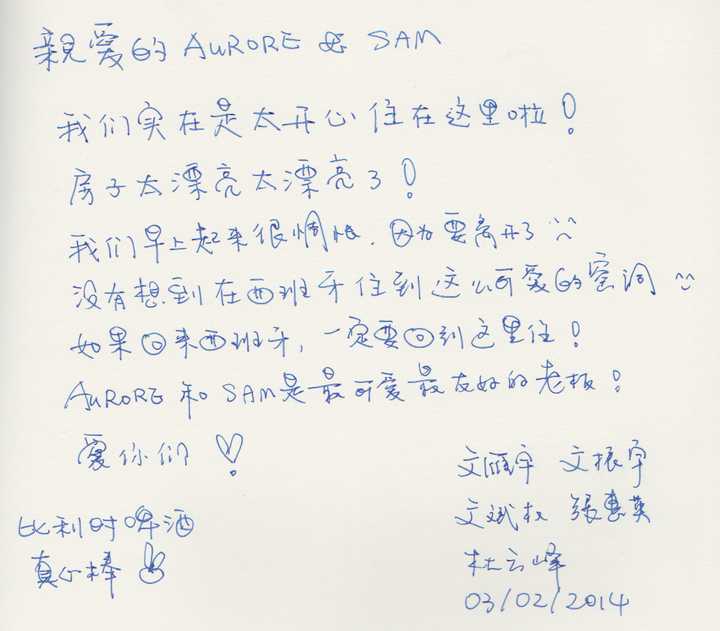 親愛的 AURORE & SAM
我们实在是太开心住在这里啦!
房子太漂亮太漂亮了!
我们早上起来很惆怅,因为要离开了
没有想到在西班牙住到这么可爱的窑洞
如果回来西班牙,一定要回到这里住!
AURORE 和 SAM是最可爱最友好的老板!
愛你们
比利时啤酒
真心棒
文雁宇 文振宇
文斌权 張惠英
杜云峰
03/02/2014